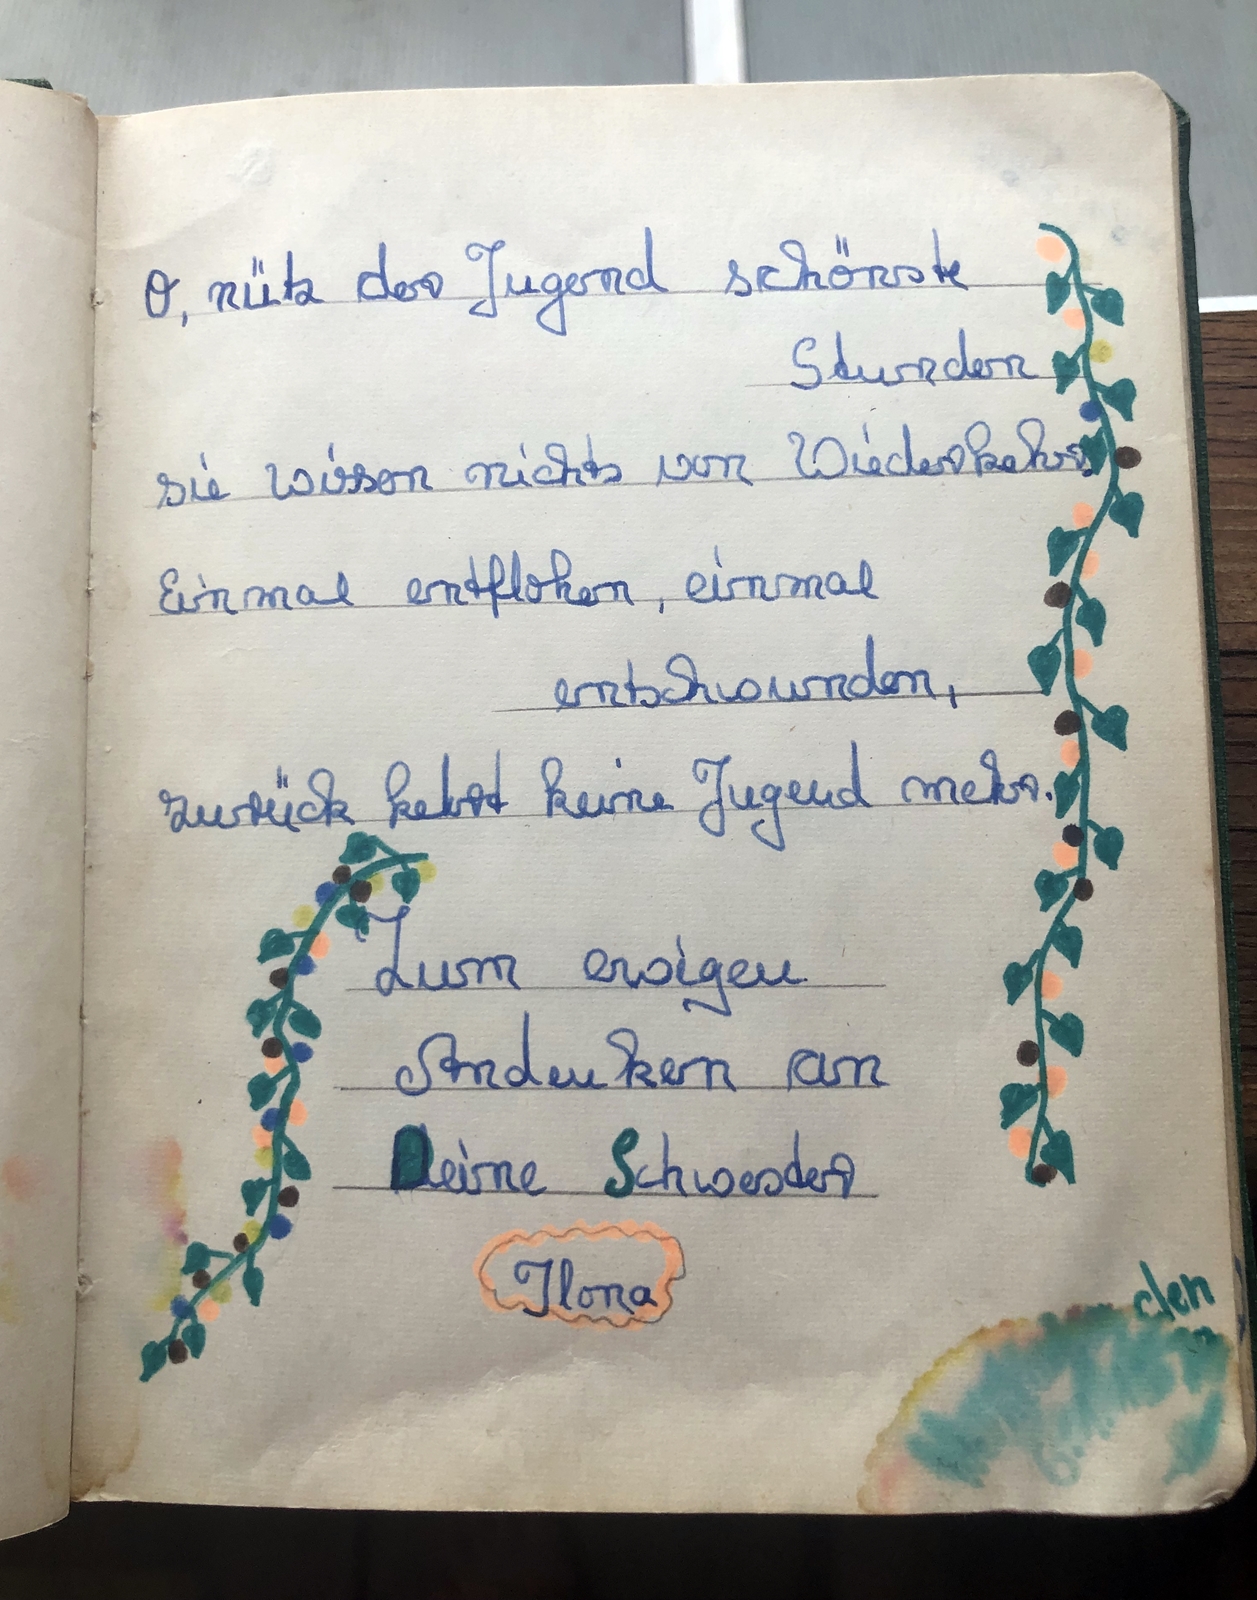 O, nütz der Jugend schönste
Stunden
sie wissen nichts von Wiederkehr,
Einmal entflohen, einmal
entschwunden,
zurück kehrt keine Jugend mehr.
Zum ewigen
Andenken an
Deine Schwester
Ilona
den